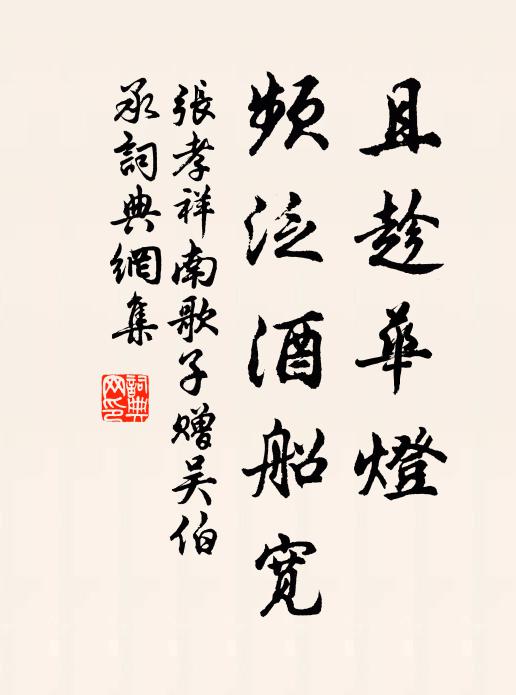 且趁華燈
頻泛酒船寬
張孝祥南歌子贈吴伯
承詞典網集
詞典
网印